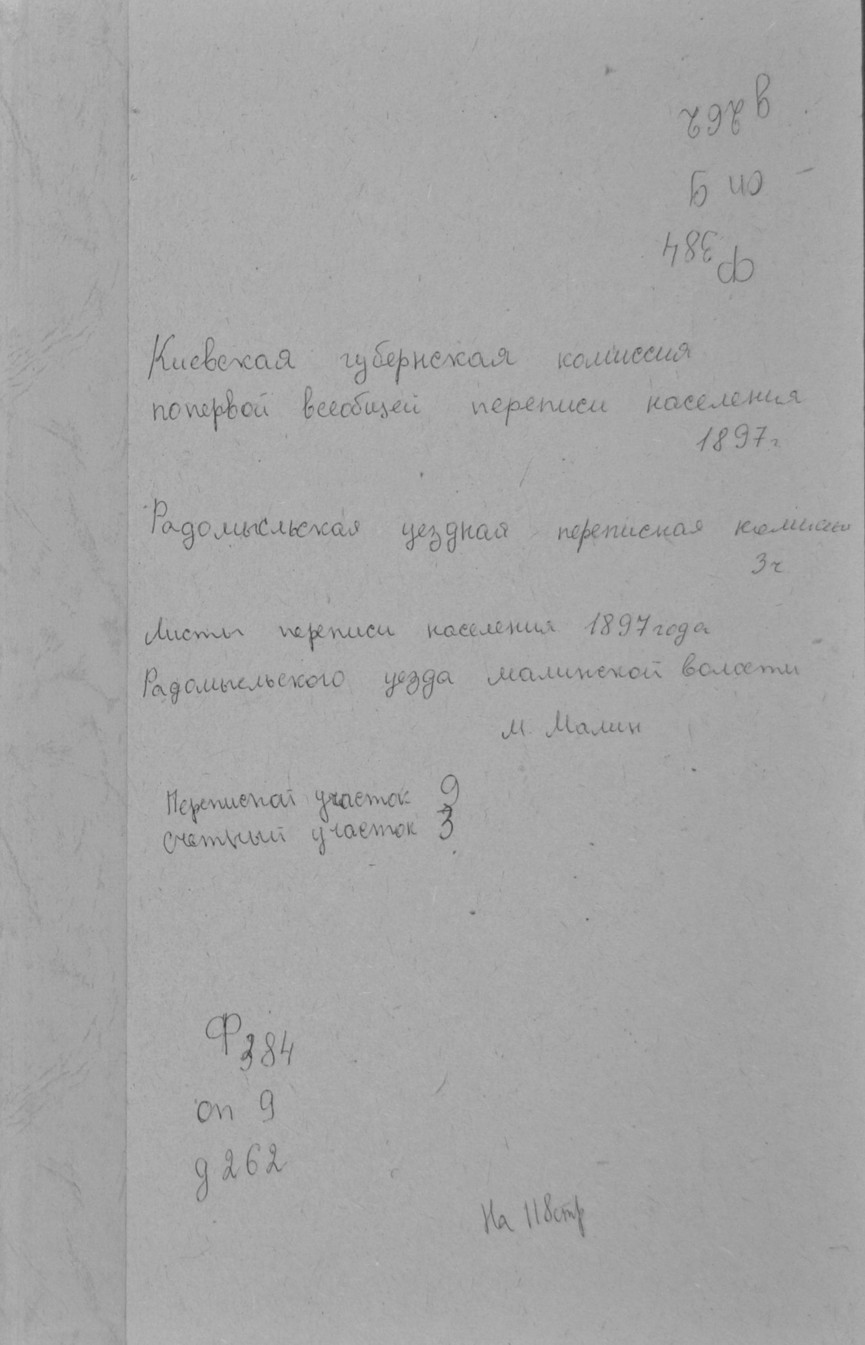 д 262
оп 9
Ф 384
Киевская губернская комиссия
попервой всеобщей переписи населения
1897г
Радомысльская уездная переписная комиссия
3ч
Листы переписи населения 1897 года
Радомысльского уезда малинской волости
м. Малин
Переписной участок 9
Счетный участок 3
Ф 384
оп 9
д 262
На 118стр